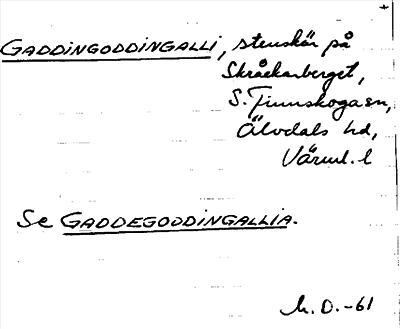 GADDINGODDINGALLI, stenskär på
Skråckarberget,
S. Finnskoga sn,
Älvdals hd,
Värml. l
Se GADDEGODDINGALLIA.
M.O.-61